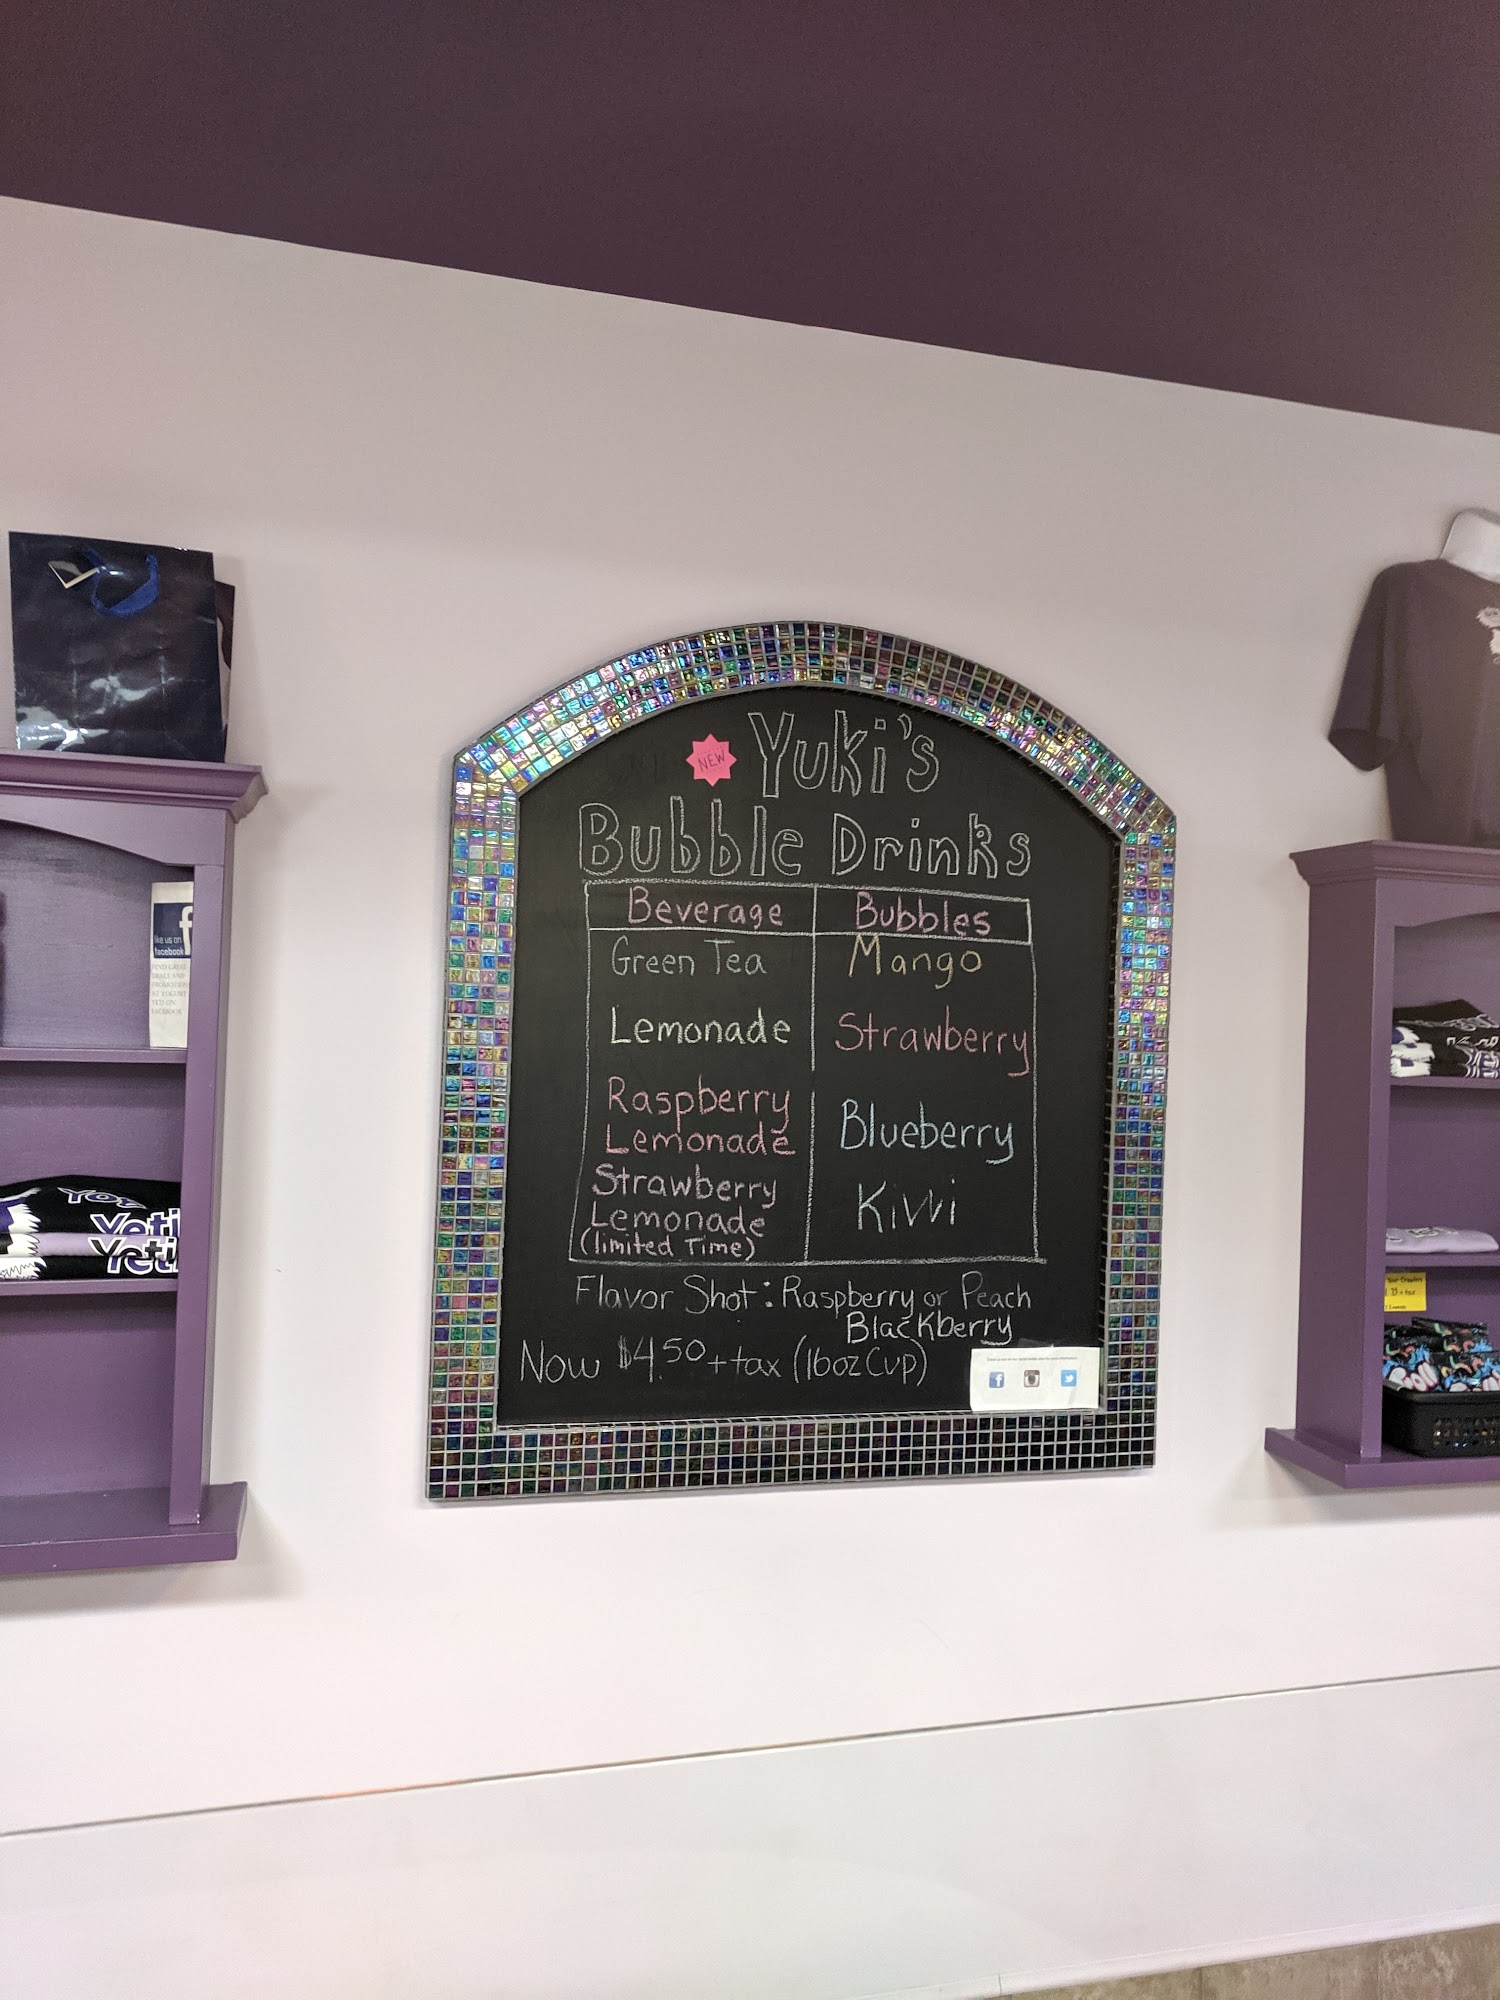 NEW
Yuki's
Bubble Drinks
Beverage
Bubbles
Green Tea
Mango
Lemonade
Strawberry
Raspberry
Lemonade
Blueberry
Strawberry
Lemonade
(limited Time)
Kiwi
Flavor Shot: Raspberry or Peach
Blackberry
Now $4.50 + tax (16oz Cup)
like us on
facebook
f
FIND GREAT
DEALS AND
AT YOGURT
YETI ON
FACEBOOK
Yeti